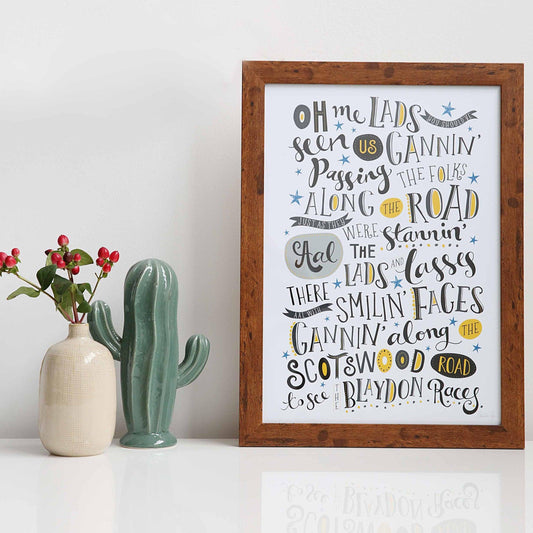 OH me LADS YOU SHOULD'VE
seen US GANNIN'
Passing THE FOLKS
ALONG THE ROAD
JUST AS THEY WERE stannin'
Aal THE LADS AND Lasses
THERE AAL WITH SMILIN' FACES
GANNIN' along THE
SCOTSWOOD ROAD
to see THE BLAYDON Races